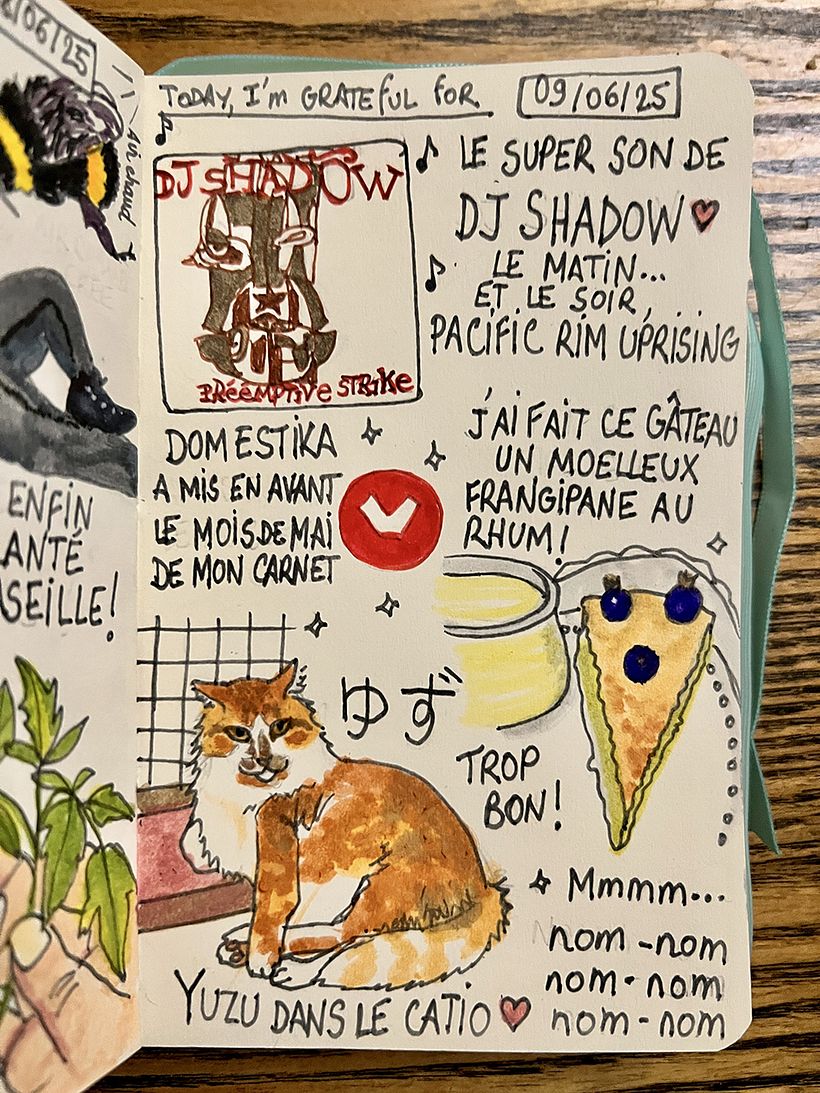 /06/25
Air chaud
ENFIN
ANTÉ
SEILLE!
TODAY, I'm GRATEFUL FOR
09/06/25
DJ SHADOW
PRÉEMPTIVE STRIKE
LE SUPER SON DE
DJ SHADOW
LE MATIN...
ET LE SOIR,
PACIFIC RIM UPRISING
DOMESTIKA
A MIS EN AVANT
LE MOIS DE MAI
DE MON CARNET
J'AI FAIT CE GÂTEAU
UN MOELLEUX
FRANGIPANE AU
RHUM!
ゆず
TROP
BON!
Mmmm...
nom-nom
nom-nom
nom-nom
YUZU DANS LE CATIO